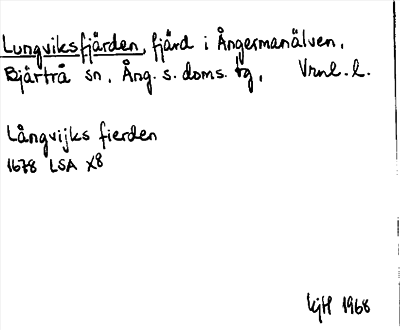 Lungviksfjärden, fjärd i Ångermanälven.
Bjärtrå sn. Ång. s. doms. tg. Vrnl. l.
Långvijks fierden
1678 LSA X8
KjH 1968